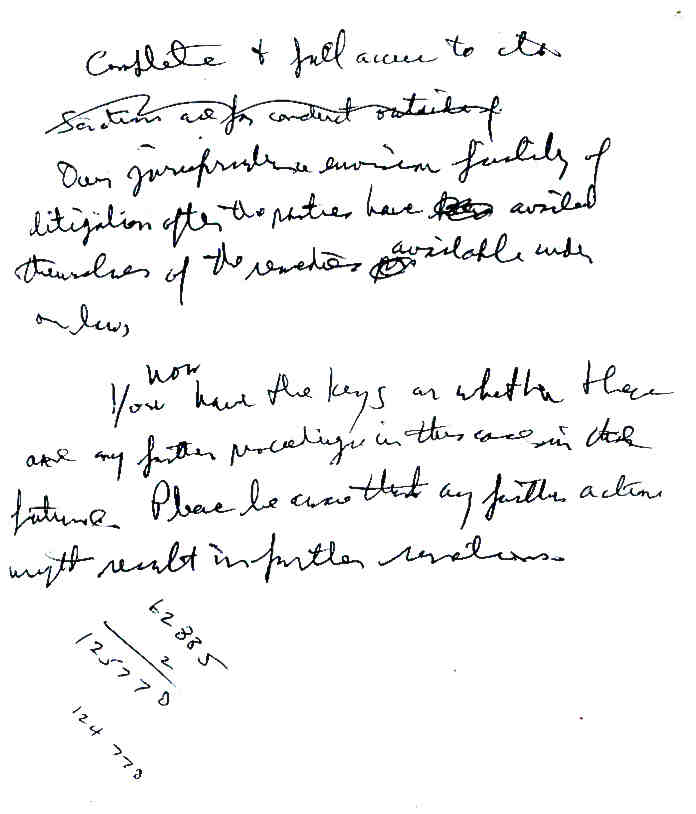 Complete & full access to its
Sanctions are for conduct outside of
Our jurisprudence envision finality of
litigation after the parties have availed
themselves of the remedies available under
our laws
now
You have the keys on whether there
are any further proceedings in this case in the
future. Please be aware that any further actions
might result in further sanctions.
62885
2
125770
124 770